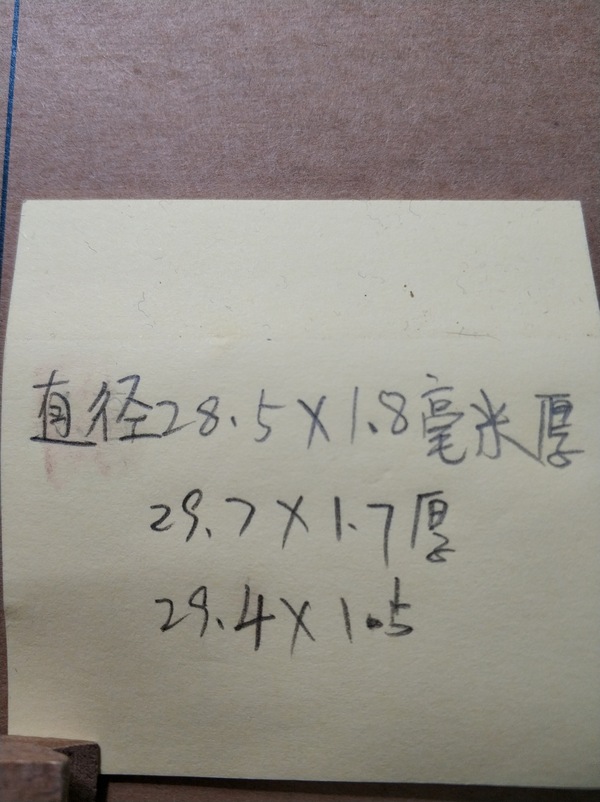 直径28.5×1.8毫米厚
29.7×1.7厚
29.4×1.5